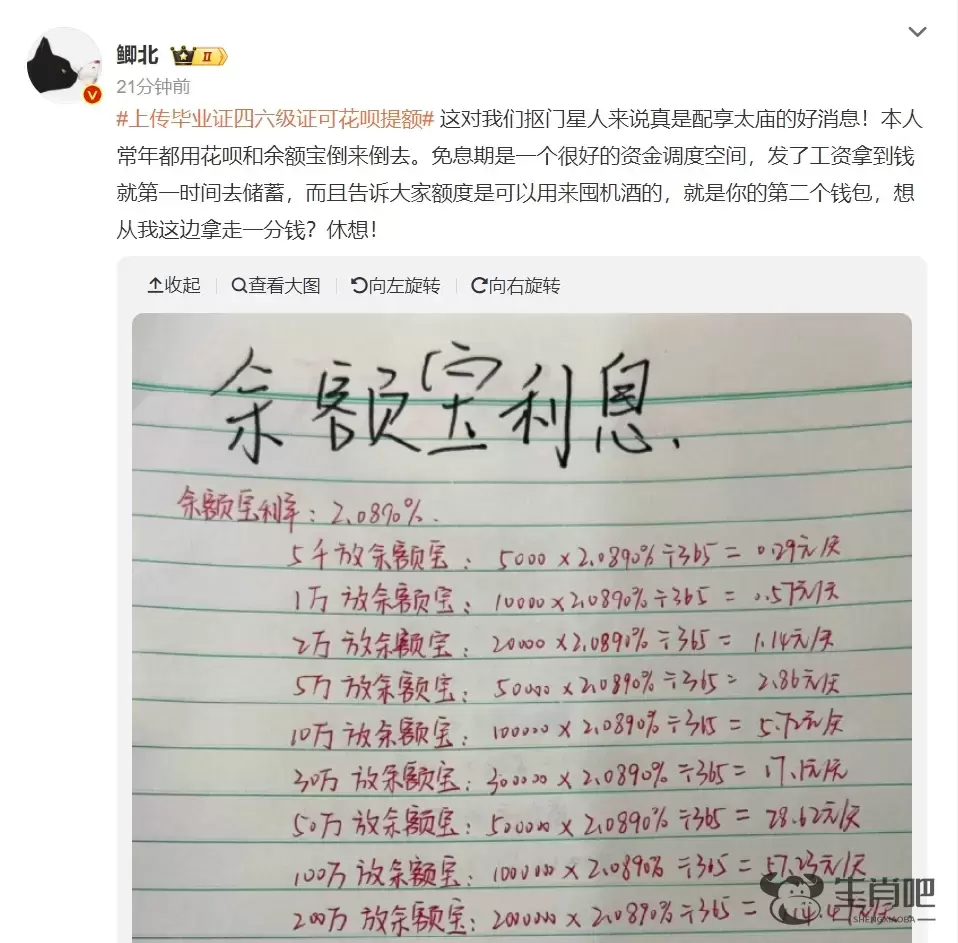 鲫北
II
21分钟前
#上传毕业证四六级证可花呗提额# 这对我们抠门星人来说真是配享太庙的好消息！本人
常年都用花呗和余额宝倒来倒去。免息期是一个很好的资金调度空间，发了工资拿到钱
就第一时间去储蓄，而且告诉大家额度是可以用来囤机酒的，就是你的第二个钱包，想
从我这边拿走一分钱？休想！
收起 查看大图 向左旋转 向右旋转
余额宝利息.
余额宝利率：2.0890%.
5千放余额宝：5000×2.0890%÷365=0.29元/天
1万放余额宝：10000×2.0890%÷365=0.57元/天
2万放余额宝：20000×2.0890%÷365=1.14元/天
5万放余额宝：50000×2.0890%÷365=2.86元/天
10万放余额宝：100000×2.0890%÷365=5.72元/天
30万放余额宝：300000×2.0890%÷365=17.1元/天
50万放余额宝：500000×2.0890%÷365=28.62元/天
100万放余额宝：1000000×2.0890%÷365=57.23元/天
200万放余额宝：2000000×2.0890%÷365=
生肖吧
SHENGXIAOBA